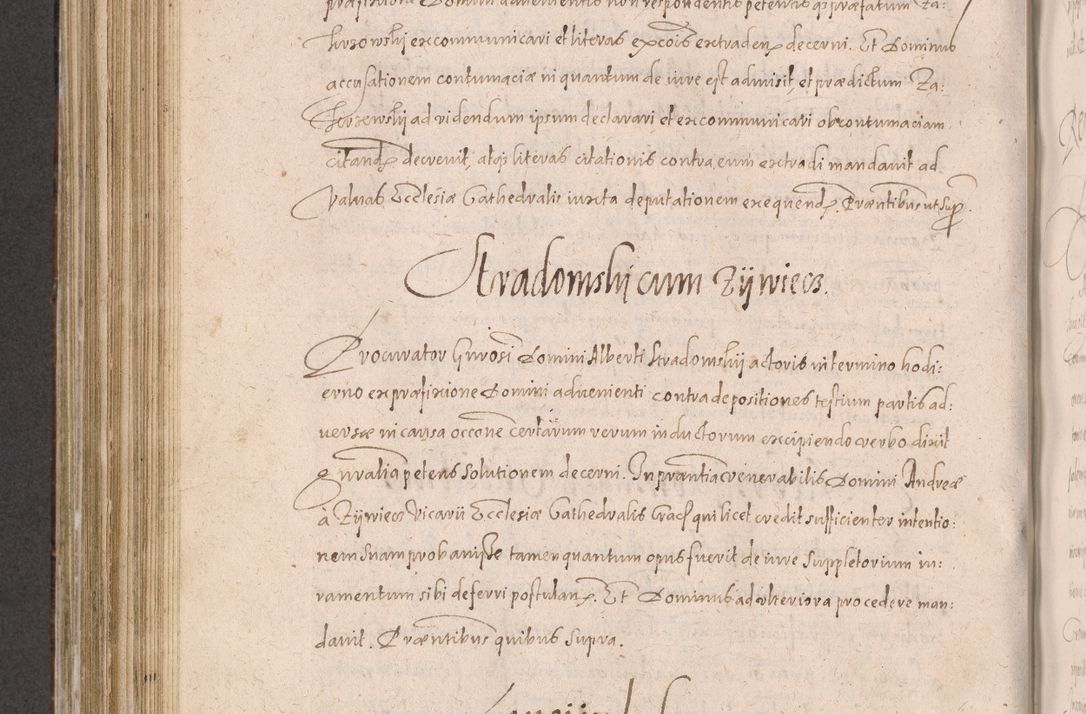 præfixione Domini advenientis non respondentis petentis q præfatum Za:
kurowskij excommunicari et literas excois extraden decerni. Et Dominus
accusationem contumaciæ in quantum de iure est admisit, et prædictum Za:
kurowskij ad videndum ipsum declarari et excommunicari ob contumaciam
citand decrevit, atq literas citationis contra eum extradi mandavit ad
Valvas Ecclesiæ Cathedralis iuxta deputationem exequend. Præntibus ut supr.
Stradomskij cum Zÿwiecz.
Procurator Gnrosi Domini Alberti Stradomskij actoris in termino hodi:
erno ex præfixione Domini advenienti contra depositiones testium partis ad:
versæ in causa occone certarum rerum inductorum excipiendo verbo dixit
gnralia petens solutionem decerni. In præntia venerabilis Domini Andreæ
à Zÿwiecz Vicarii Ecclesiæ Cathedralis Crac qui licet credit sufficienter intentio:
nem suam probavisse tamen quantum opus fuerit de iure suppletorium iu:
ramentum sibi deferri postulan. Et Dominus ad ulteriora procedere man:
davit. Præntibus quibus supra.